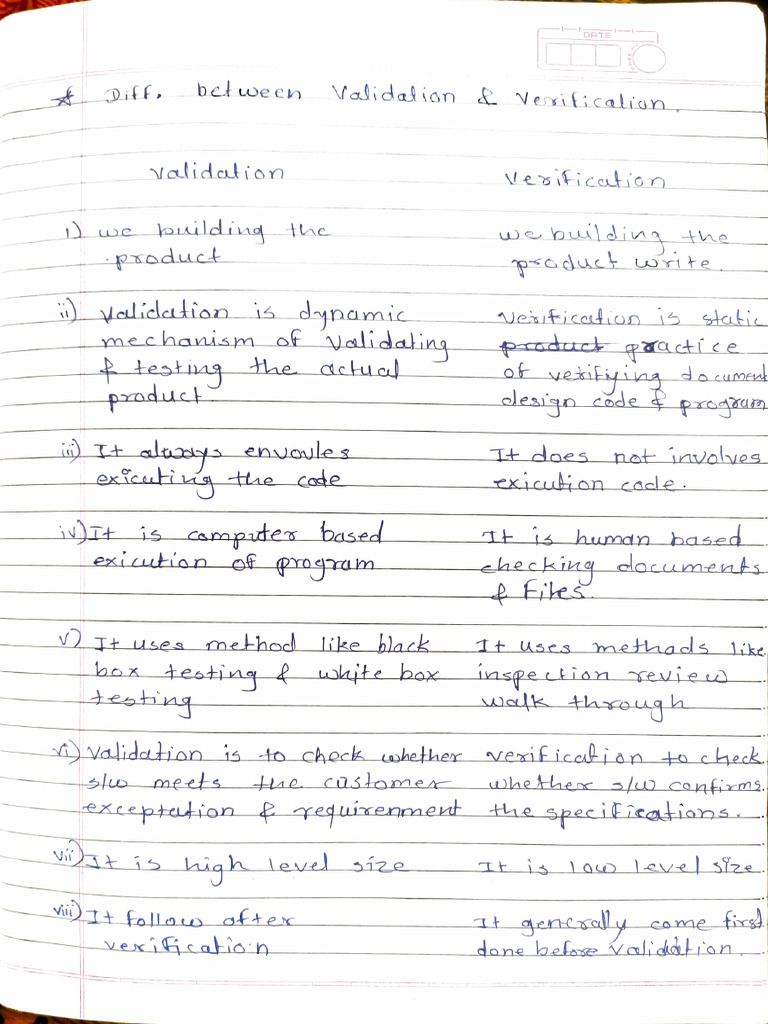 DATE
* Diff. between Validation & Verification.
Validation Verification
i) we building the we building the
product product write.
ii) Validation is dynamic Verification is static
mechanism of validating product practice
& testing the actual of verifying document
product. design code & program
iii) It always envovles It does not involves
exicuting the code exicution code.
iv) It is computer based It is human based
exicution of program checking documents
& Files.
v) It uses method like black It uses methods like
box testing & white box inspection review
testing walk through
vi) Validation is to check whether verification to check
s/w meets the customer whether s/w confirms
exceptation & requirenment the specifications.
vii) It is high level size It is low level size
viii) It follow after It generally come first
verification done before validation.